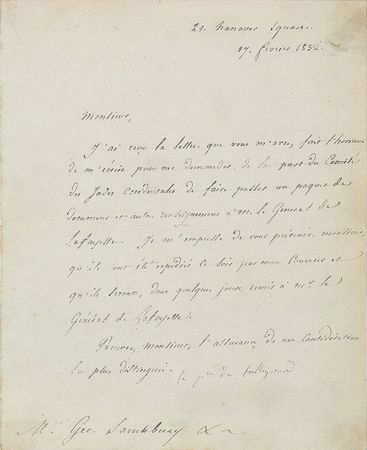 21. hanover Square.
17. février 1834.
Monsieur,
J'ai reçu la lettre que vous m'avez fait l'honneur
de m'écrire pour me demander, de la part du Comité
des Indes Occidentales de faire passer un paquet de
documens et autres renseignemens à M. le Général de
Lafayette. Je m'empresse de vous prévenir, monsieur,
qu'ils ont été expédiés ce soir par mon Courrier et
qu'ils seront, dans quelques jours, remis à Mr. le
Général de Lafayette.
Recevez, monsieur, l'assurance de ma considération
la plus distinguée. le pr. de talleyrand
Mr. Geo. Saintsbury &a